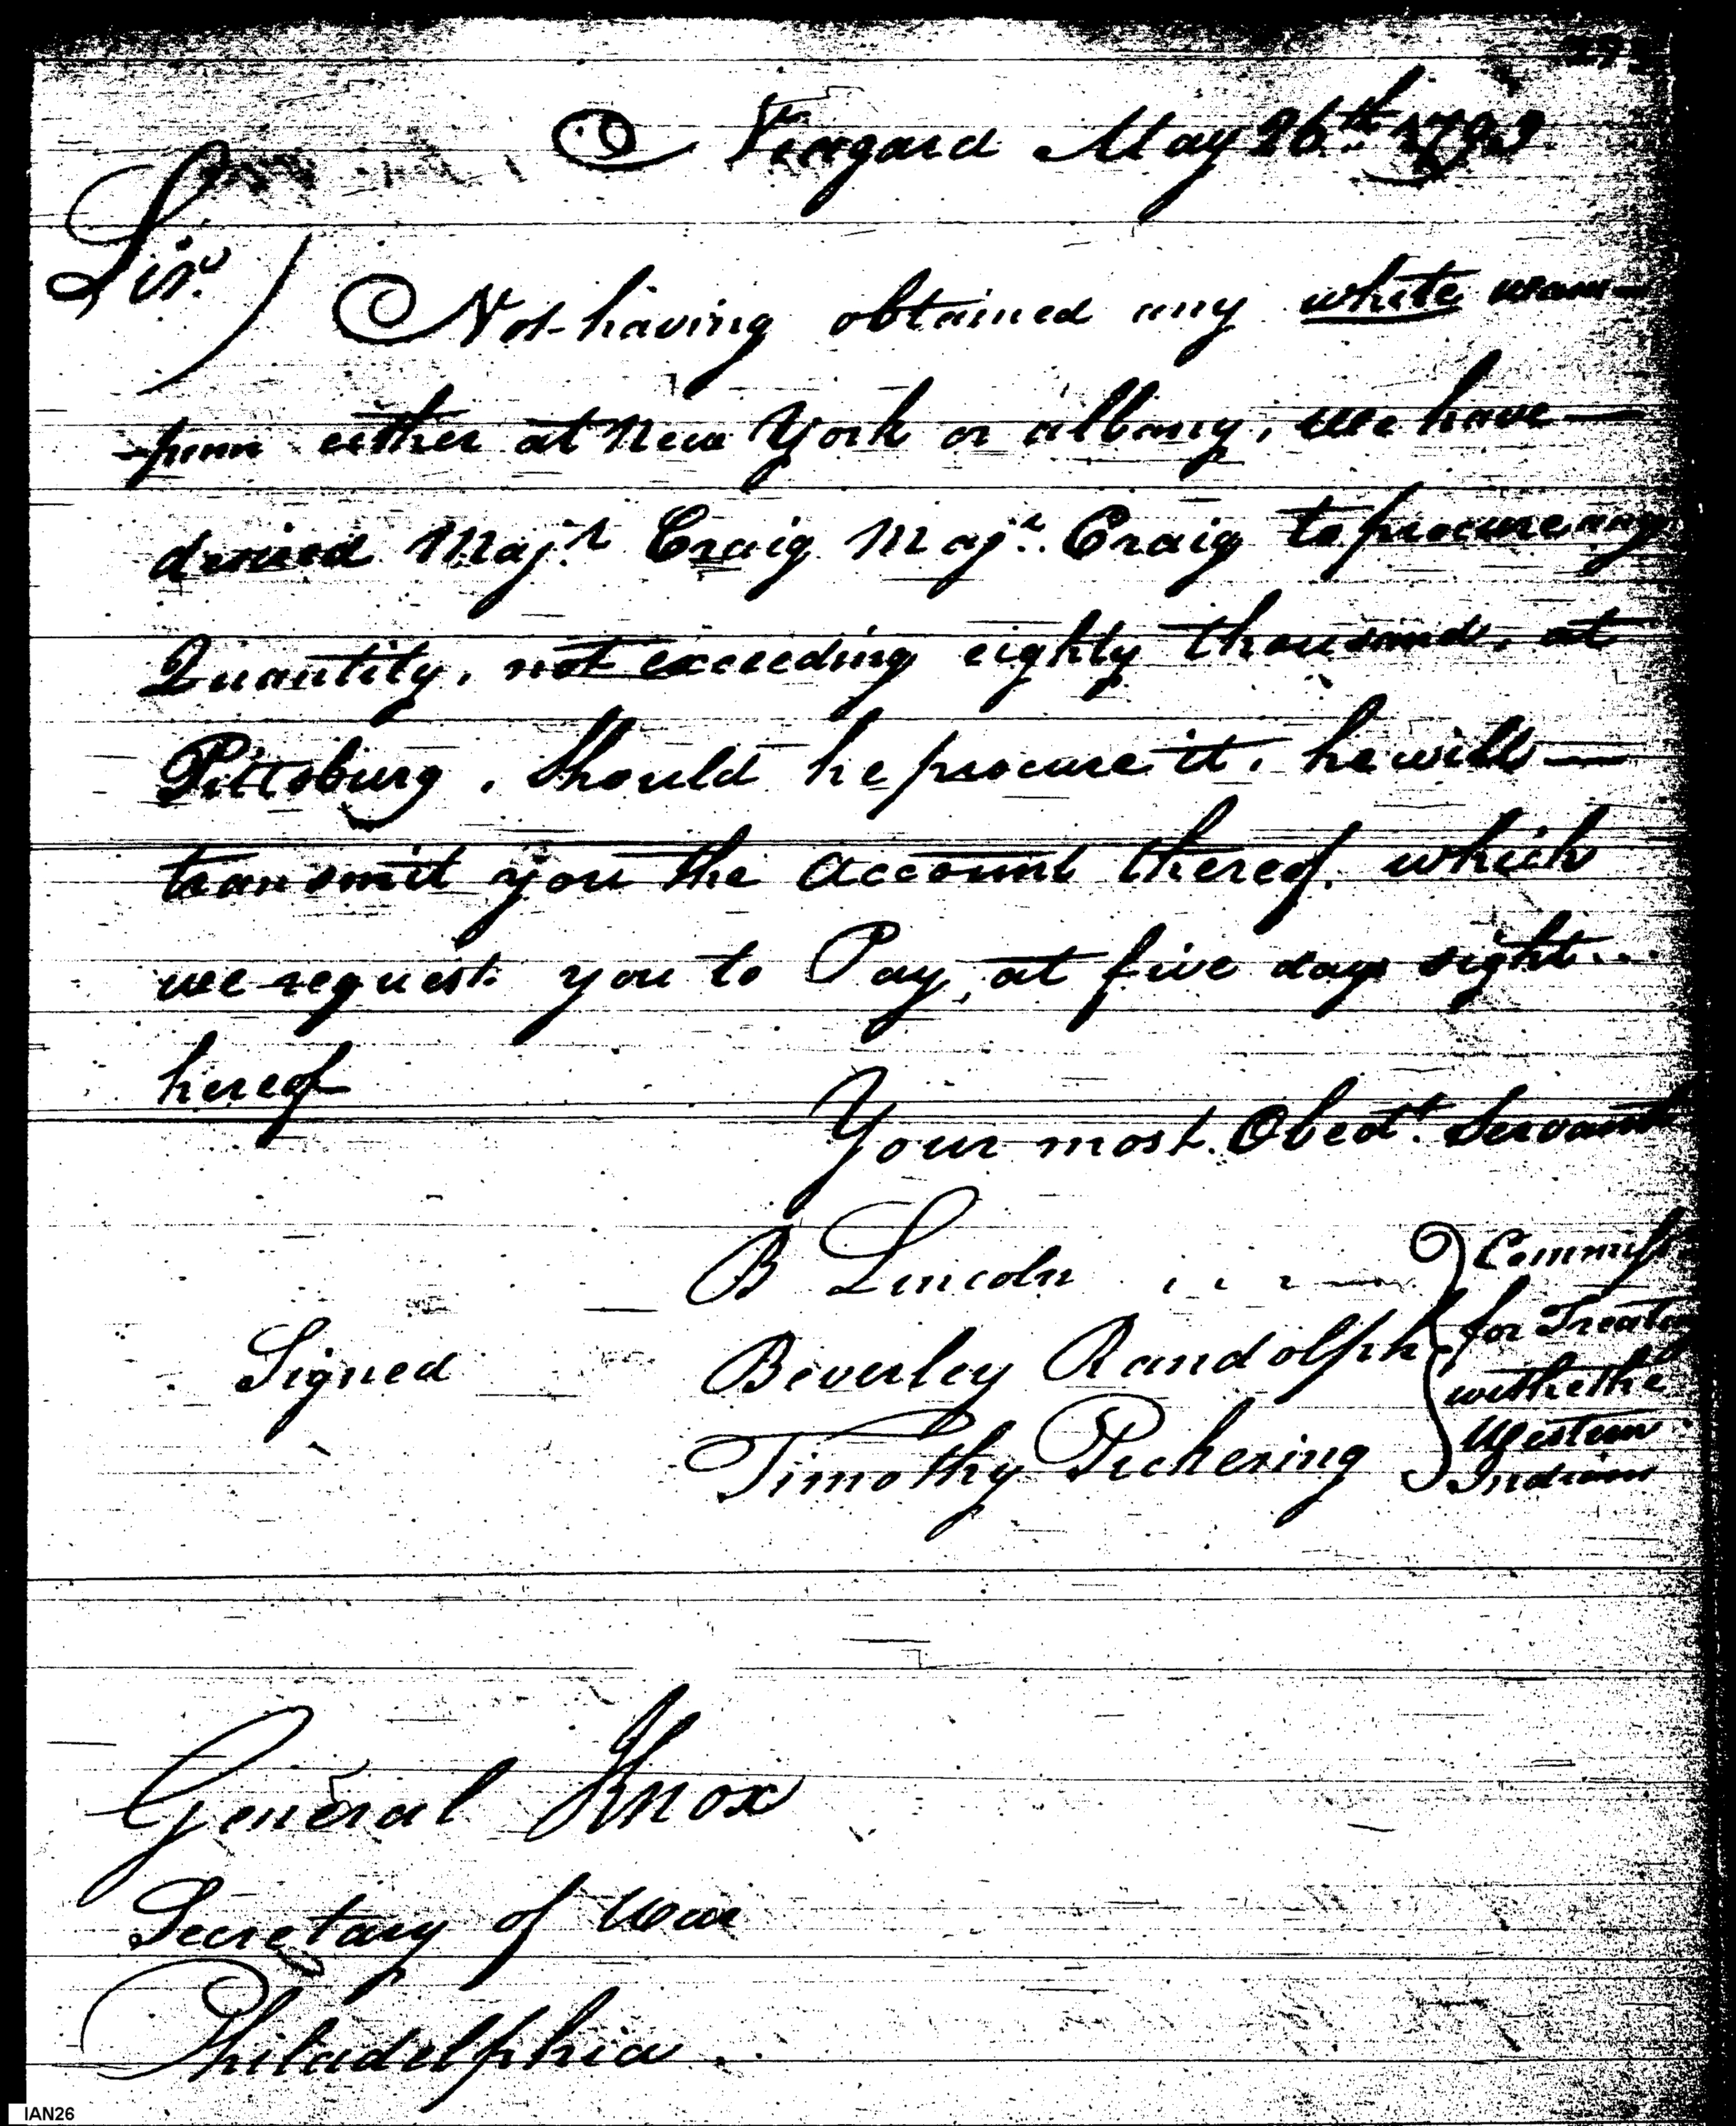 Niagara May 26th 1793
Sir.
Not having obtained any white wam-
-pum either at New York or albany, we have
desired Majr. Craig Majr. Craig to procure any
Quantity, not exceeding eighty thousand, at
Pittsburg. Should he procure it, he will
transmit you the account thereof. which
we request you to Pay, at five days sight
hereof
Your most Obedt. Servants
B Lincoln
Commiss
Beverley Randolph
for Treaty
Signed
with the
Timothy Pickering
Western
Indians
General Knox
Secretary of War
Philadelphia.
IAN26